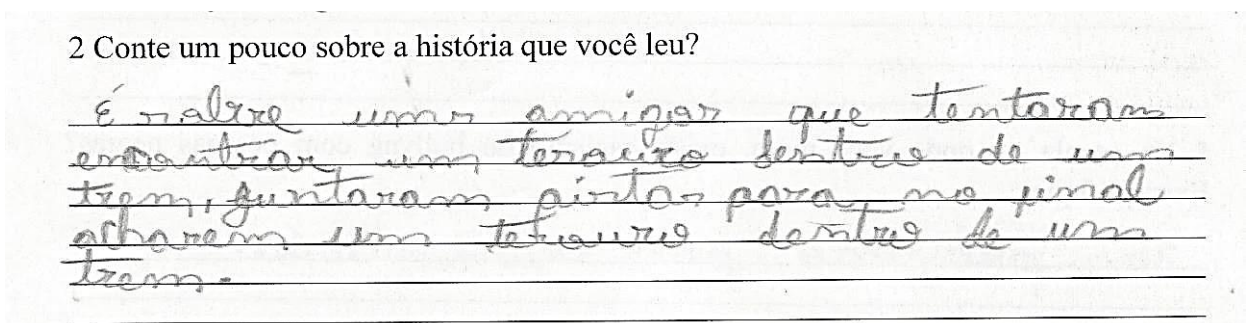 2 Conte um pouco sobre a história que você leu?
É sobre uns amigos que tentaram
encontrar um tesouro dentro de um
trem, juntaram pistas para, no final
acharem um tesouro dentro de um
trem.